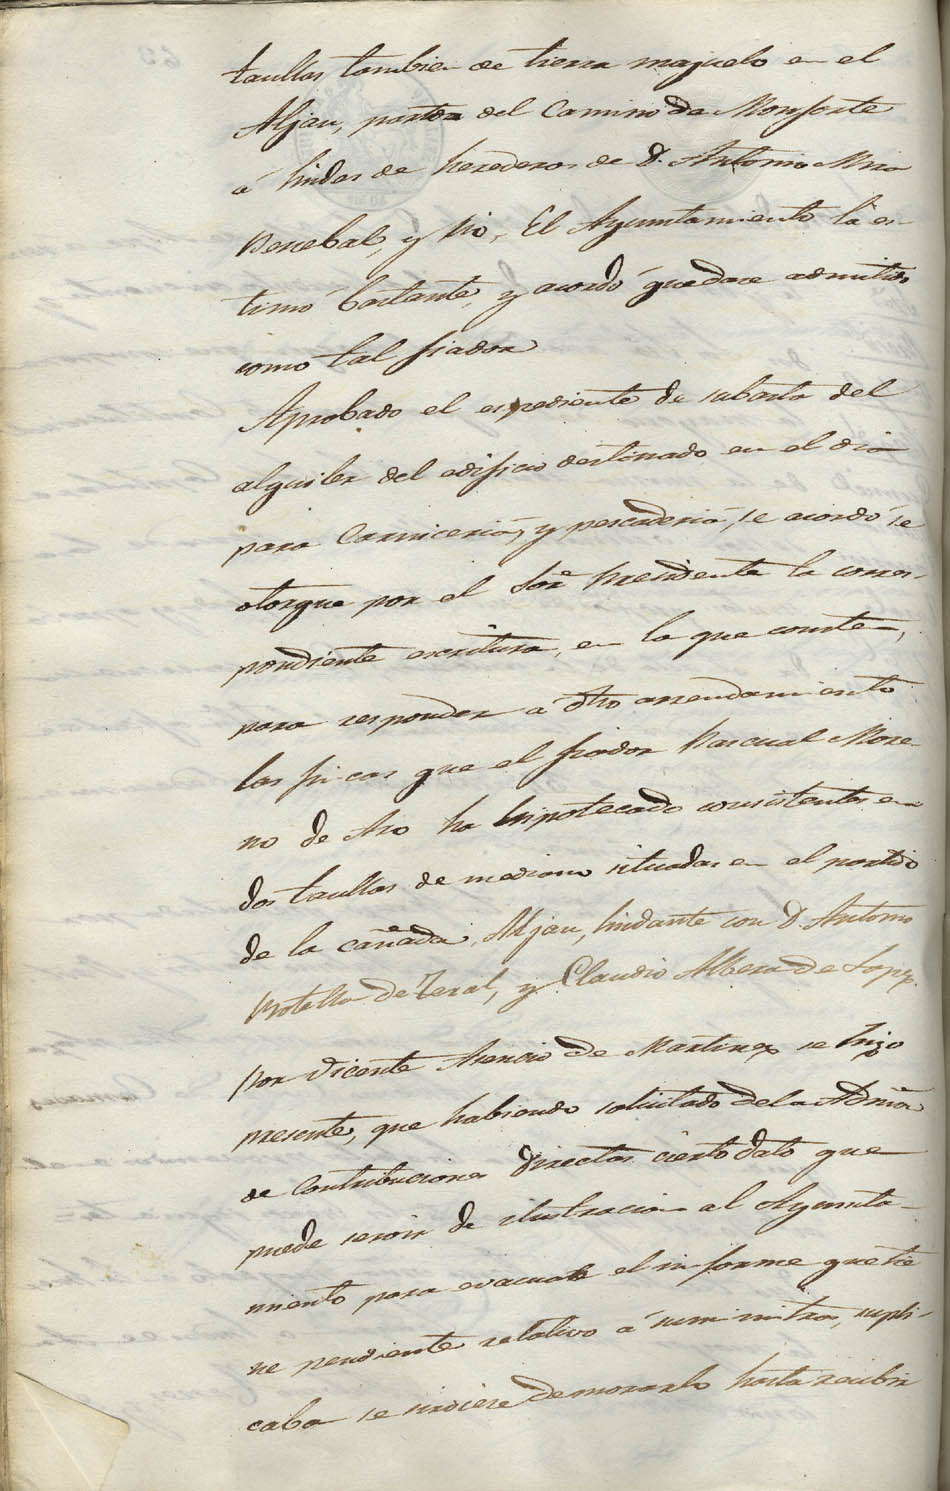 taullas tambien de tierra majuelo en el
Aljau, partida del Camino de Monforte
á lindes de herederos de D. Antonio Mira
Percebal, y Rio, El Ayuntamiento la es-
timó bastante, y acordó quedase admitido
como tal fiador
Aprobado el espediente de subasta del
alquiler del edificio destinado en el dia
para Carniceria, y pescaderia, se acordó se
otorgue por el Sor. Presidente la corres-
pondiente escritura, en la que consten,
para responder á dho arrendamiento
las fincas que el fiador Pascual More-
no de Aro ha hipotecado consistentes en
dos taullas de mediano situadas en el partido
de la cañada, Aljau, lindante con D. Antonio
Botella de Teral, y Claudio Albera de Lopez.
Por Vicente Asencio de Martinez se hizo
presente, que habiendo solicitado de la Admon.
de Contribuciones Directas cierto dato que
puede servir de ilustracion al Ayunta-
miento para evacuar el informe que tie
ne pendiente relativo á suministros, supli-
caba se sirviese demorarlo hasta recibir